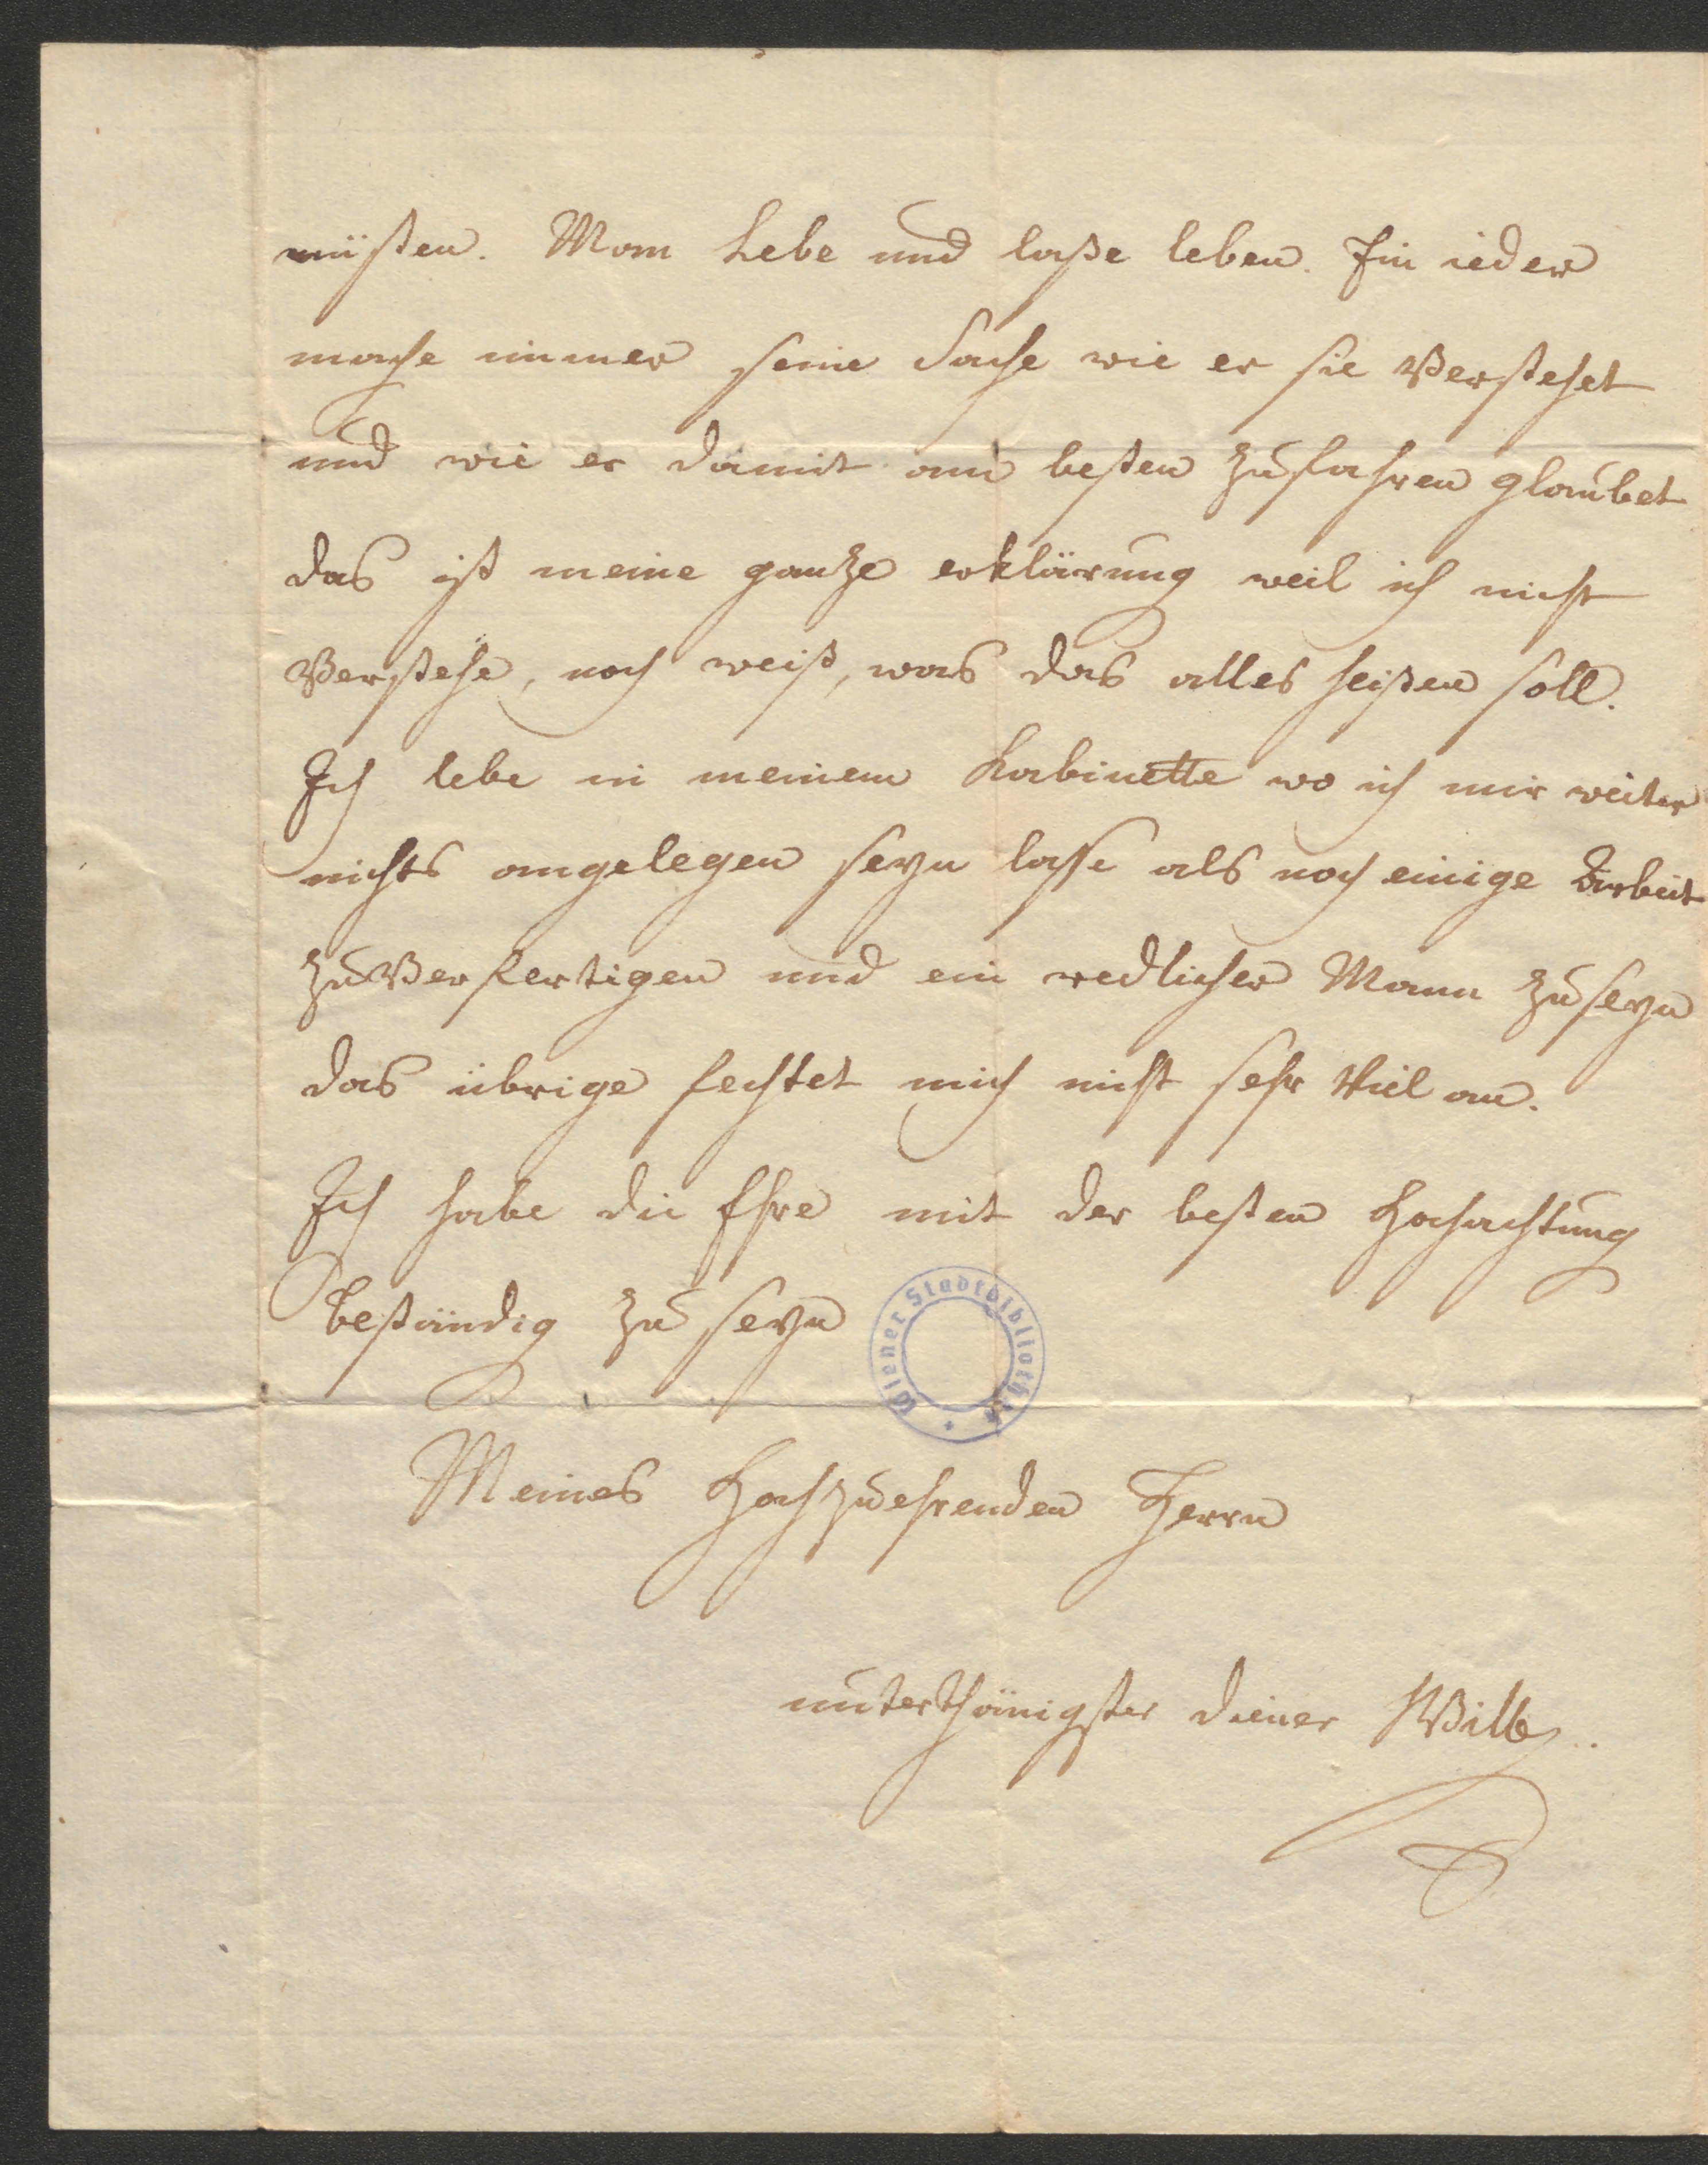 müßen. Man Lebe und laße leben. Ein ieder
mache immer seine Sache wie er sie Verstehet
und wie er damit am besten zufahren glaubet
das ist meine gantze erklärung weil ich nicht
Verstehe, noch weiß, was das alles heißen soll.
Ich lebe in meinem Kabinette wo ich mir weiter
nichts angelegen seyn lasse als noch einige Arbeit
zu Verfertigen und ein redlicher Mann zu seyn
das übrige fechtet mich nicht sehr Viel an.
Ich habe die Ehre mit der besten Hochachtung
beständig zu seyn
Wiener Stadtbibliothek
Meines Hochzuehrenden Herrn
unterthänigster diener Wille